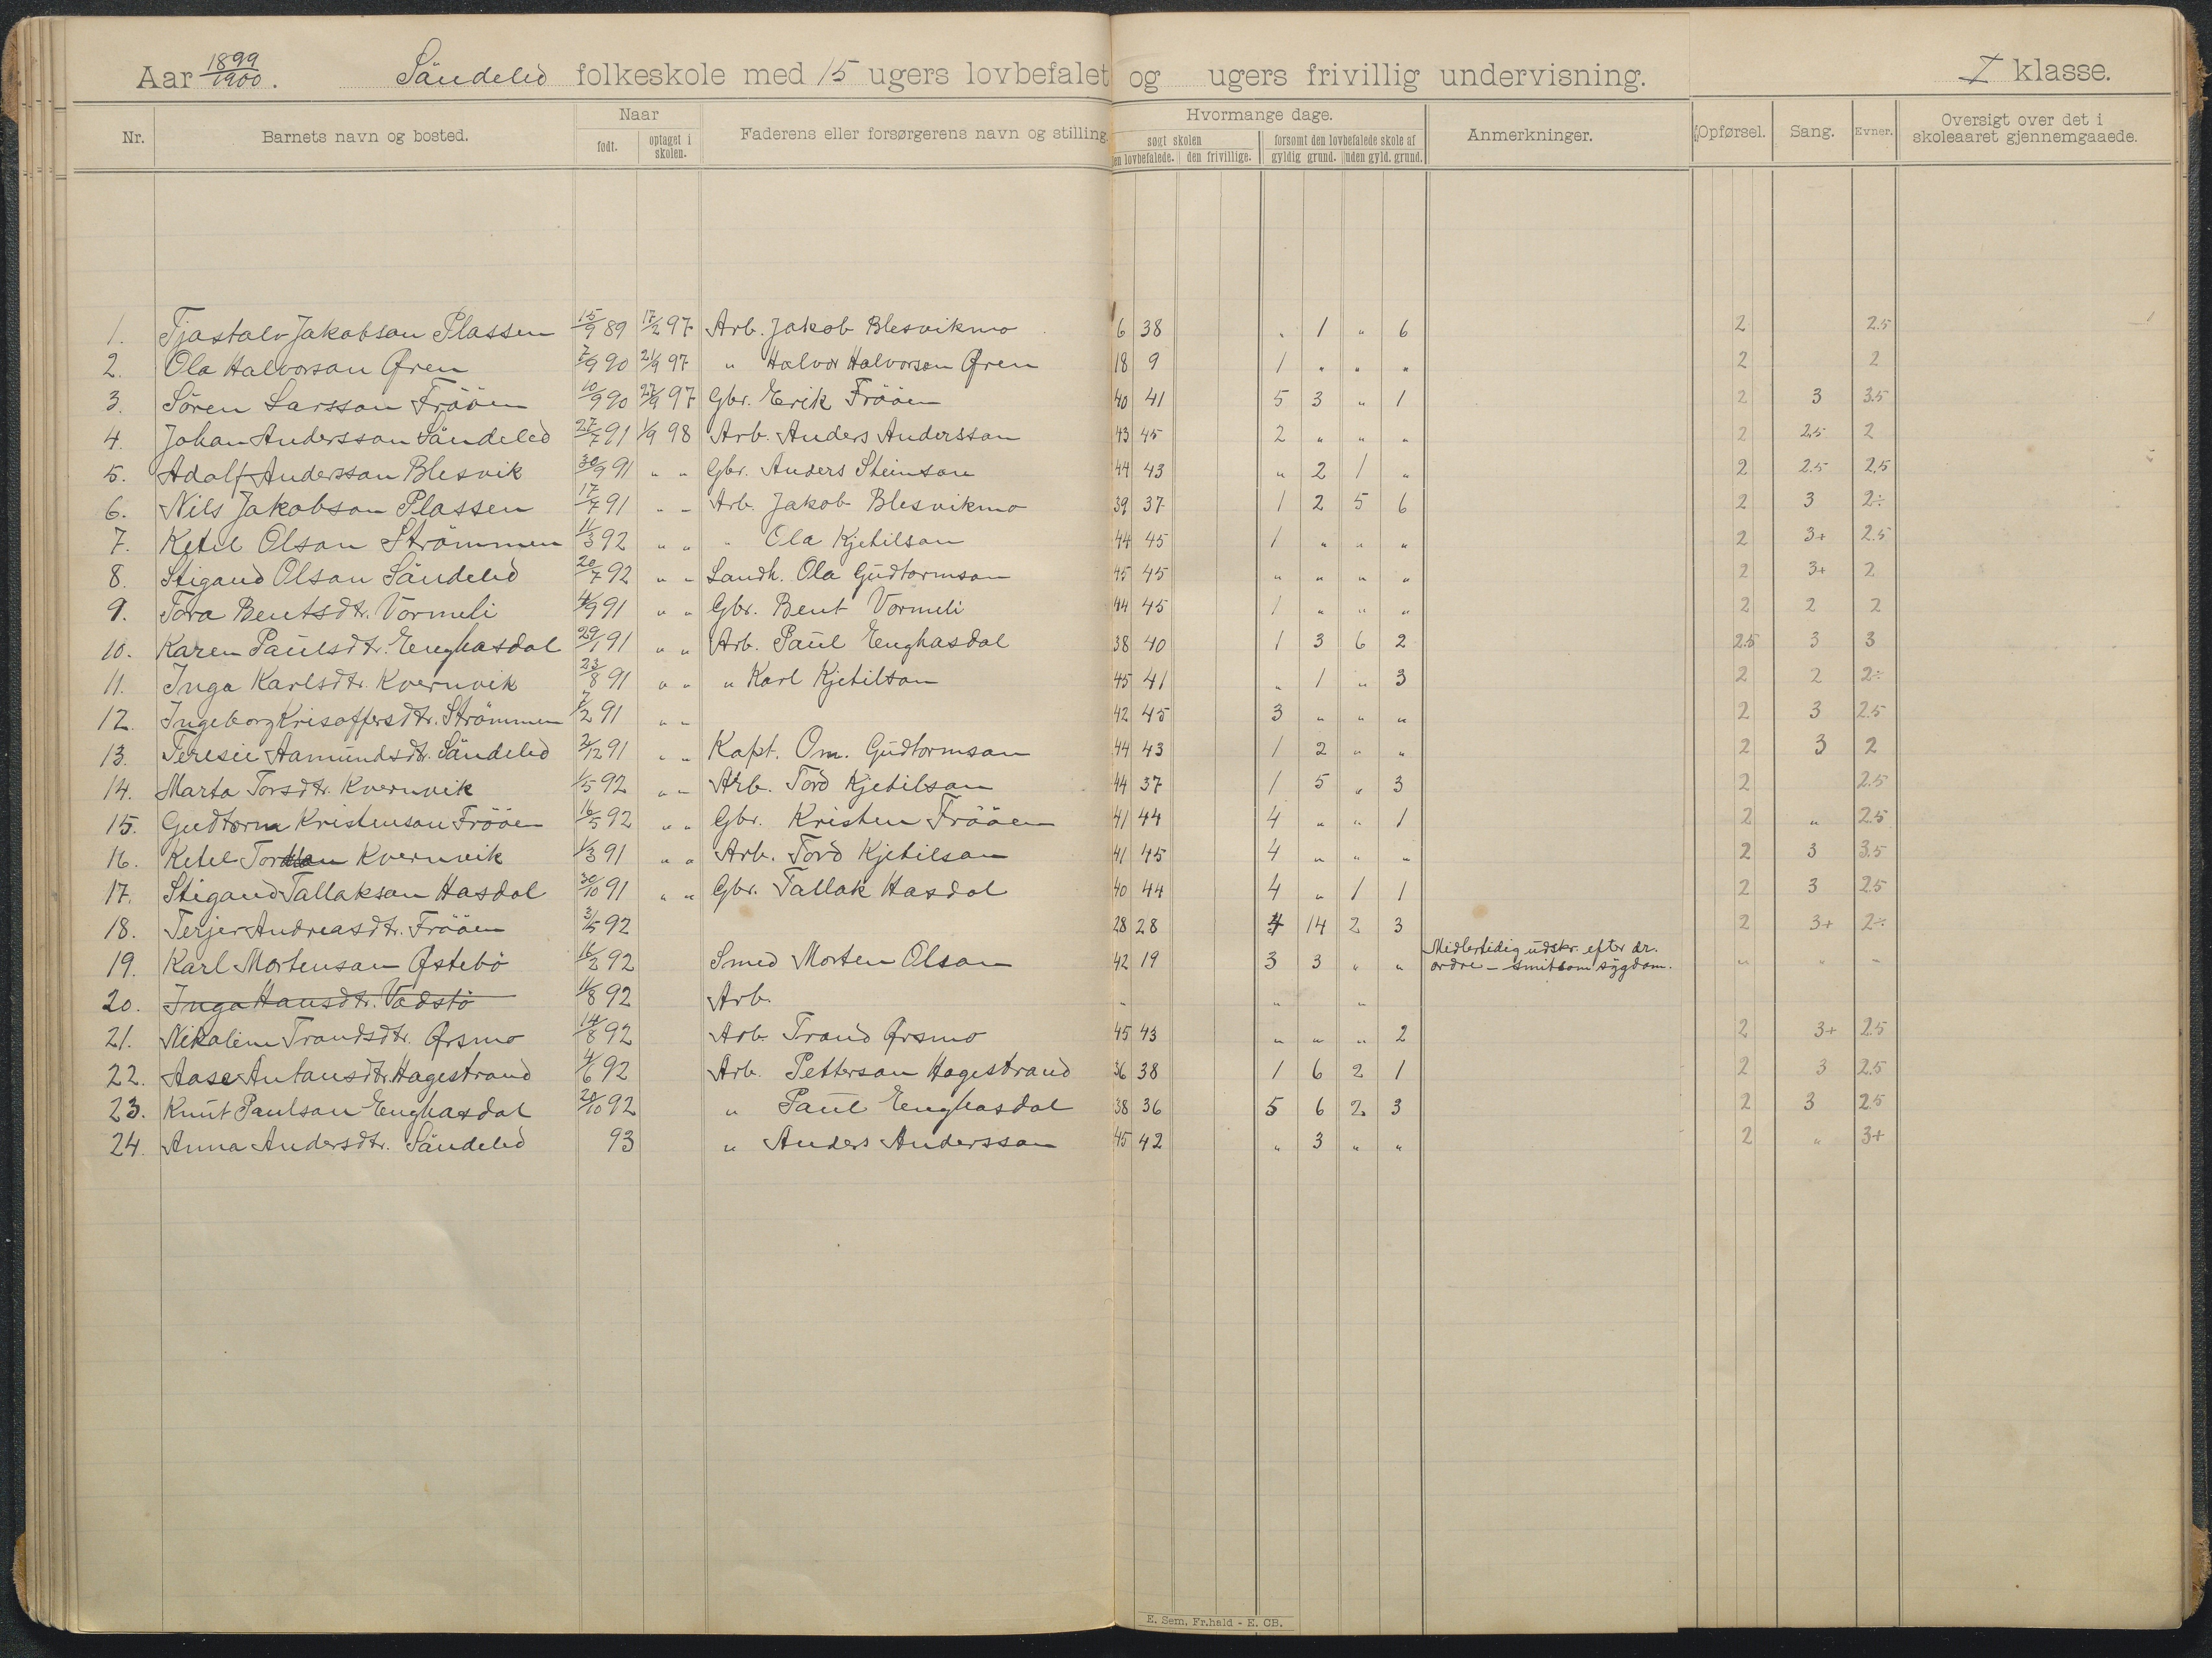 Aar 1899/1900. Söndeled folkeskole med 15 ugers lovbefalet og ugers frivillig undervisning. I klasse.
Nr. Barnets navn og bosted. Naar Faderens eller forsørgerens navn og stilling Hvormange dage. Anmerkninger. Opførsel. Sang. Evner. Oversigt over det i skoleaaret gjennemgaaede.
født. optaget i skolen. søgt skolen forsømt den lovbefalede skole af
den lovbefalede. den frivillige. gyldig grund. uden gyld. grund.
1. Tjøstolv Jakobson Plassen 15/9 89 17/2 97 Arb. Jakob Blesvikmo 6 38 " 1 " 6 2 2.5
2. Ola Halvorson Øren 7/9 90 21/9 97 " Halvor Halvorson Øren 18 9 1 " " " 2 2
3. Sören Larsson Frööen 10/9 90 27/9 97 Gbr. Erik Frööen 40 41 5 3 " 1 2 3 3.5
4. Johan Andersson Söndeled 27/7 91 1/9 98 Arb. Anders Andersson 43 45 2 " " " 2 2.5 2
5. Adolf Andersson Blesvik 30/9 91 " " Gbr. Anders Steinson 44 43 " 2 1 " 2 2.5 2.5
6. Nils Jakobson Plassen 17/7 91 " " Arb. Jakob Blesvikmo 39 37 1 2 5 6 2 3 2÷
7. Ketil Olson Strömmen 11/3 92 " " " Ola Kjetilson 44 45 1 " " " 2 3+ 2.5
8. Stigand Olson Söndeled 20/7 92 " " Landh. Ola Gudtormson 45 45 " " " " 2 3+ 2
9. Tora Bentsdtr. Vormeli 4/9 91 " " Gbr. Bent Vormeli 44 45 1 " " " 2 2 2
10. Karen Paulsdtr. Enghasdal 29/1 91 " " Arb. Paul Enghasdal 38 40 1 3 6 2 2.5 3 3
11. Inga Karlsdtr. Kvernvik 23/8 91 " " " Karl Kjetilson 45 41 " 1 " 3 2 2 2÷
12. Ingeborg Krisoffersdtr. Strömmen 7/2 91 " " 42 45 3 " " " 2 3 2.5
13. Teresie Aamundsdtr. Söndeled 2/12 91 " " Kapt. Om. Gudtormson 44 43 1 2 " " 2 3 2
14. Marta Torsdtr. Kvernvik 1/5 92 " " Arb. Tord Kjetilson 44 37 1 5 " 3 2 2.5
15. Gudtorm Kristenson Frööen 16/5 92 " " Gbr. Kristen Frööen 41 44 4 " " 1 2 " 2.5
16. Ketel Tordson Kvernvik 1/3 91 " " Arb. Tord Kjetilson 41 45 4 " " " 2 3 3.5
17. Stigand Tallakson Hasdal 30/10 91 " " Gbr. Tallak Hasdal 40 44 4 " 1 1 2 3 2.5
18. Terjer Andreasdtr. Frööen 3/5 92 28 28 4 14 2 3 2 3+ 2÷
19. Karl Mortenson Østebö 16/2 92 Smed Morten Olson 42 19 3 3 " " Midlertidig udskr. efter dr. ordre - smitsom sygdom. " " "
20. Inga Hansdtr. Vadstö 11/8 92 Arb. " " "
21. Nikoline Trondsdtr.Ørsmo 14/8 92 Arb. Trond Ørsmo 45 43 " " " 2 2 3+ 2.5
22. Aase Antonsdtr. Hagestrand 4/6 92 Arb. Petterson Hagestrand 36 38 1 6 2 1 2 3 2.5
23. Knut Paulson Enghasdal 20/10 92 " Paul Enghasdal 38 36 5 6 2 3 2 3 2.5
24. Anna Andersdtr. Söndeled 93 " Anders Andersson 45 42 " 3 " " 2 " 3+
E. Sem, Fr.hald - E. CB.